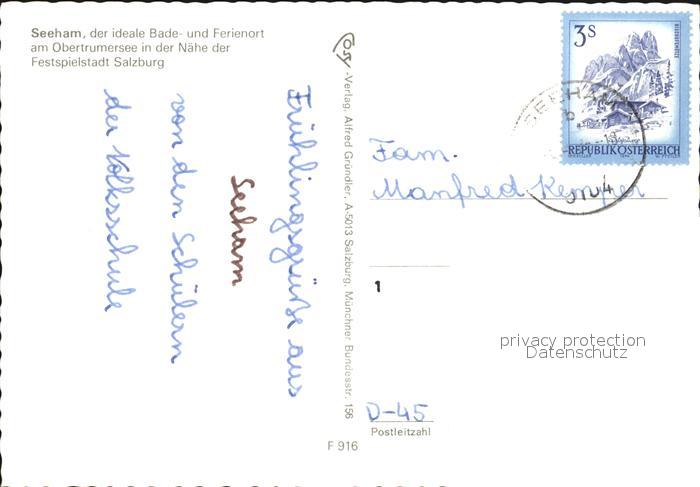 Seeham, der ideale Bade- und Ferienort
am Obertrumersee in der Nähe der
Festspielstadt Salzburg
Frühlingsgrüße aus
Seeham
von den Schülern
der Volksschule
Cosy-Verlag, Alfred Gründler, A-5013 Salzburg, Münchner Bundesstr. 156
F 916
3S
REPUBLIK ÖSTERREICH
SEEHAM
b
Fam.
Manfred Kemper
1
privacy protection
Datenschutz
D-45
Postleitzahl